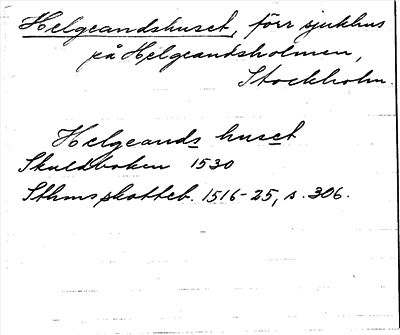 Helgeandshuset, förr sjukhus
på Helgeandsholmen,
Stockholm.
Helgeands huset
Skuldboken 1530
Sthms skotteb. 1516-25, s. 306.